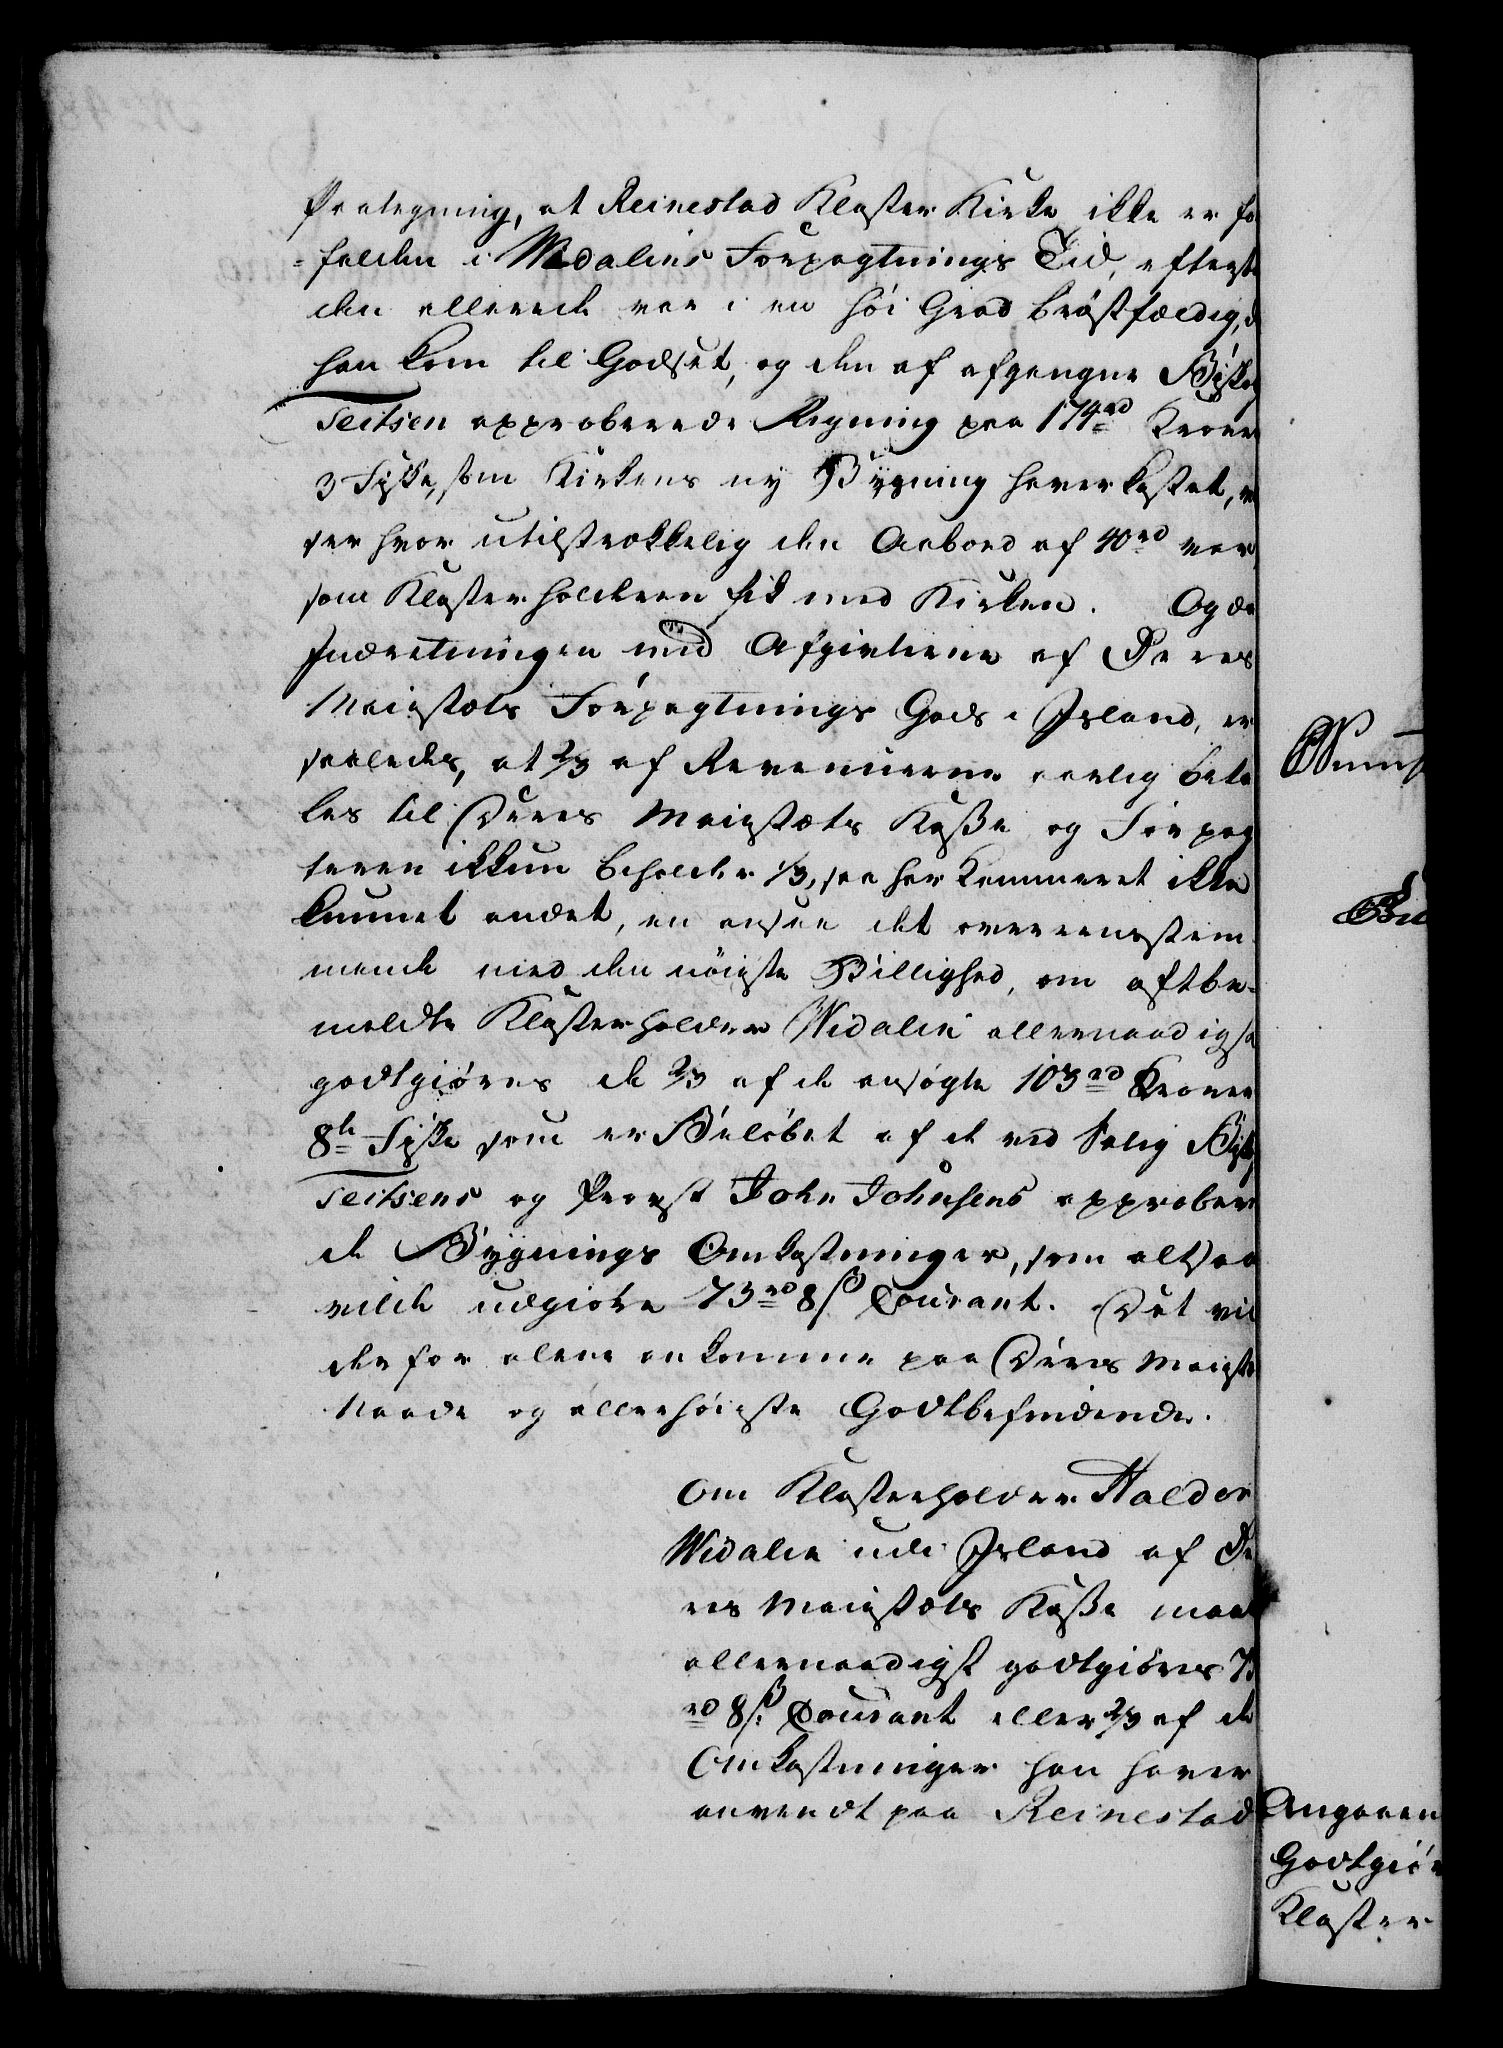 Paategning, at Reinestad Kloster Kirke ikke er for
=falden i Widalins Forpagtnings Tid, efterst
den allerede var i en höi Grad bröstfældig, d
han kom til Godset, og den af afgangne Biskop
Teitsen approberede Regning paa 174 rd Kroner
3 Fiske, som Kirkens ny Bygning haver kostet, vi
ser hvor utilstrækkelig den Aabord af 40 rd var,
som Klosterholderen fik med Kirken. Og da
Indretningen med Afgivterne af Deres
Maiestæts Forpagtnings Gods i Island, er
saaledes, at 2/3 af Revenuerne aarlig beta
les til Deres Maiestæts Kasse og Forpag
teren ikkun beholder 1/3, saa har Kammeret ikke
kunnet andet, en ansee det overeensstem
mende med den nöieste Billighed, om oftbe-
meldte Klosterholder Widalin allernaadigst
godtgiöres de 2/3 af de ansögte 103 rd Kroner
8te Fiske som er Belöbet af de ved Salig Biskop
Teitsens og Provst John Johnsens approbere
de Bygnings Omkostninger, som altsaa
vilde udgiöre 73 rd 8 ß Courant. Det vil
derfor alene ankomme paa Deres Maiestæts
Naade og allerhöieste Godtbefindende.
Om Klosterholder Haldor
Widalin udi Island af De
res Maiestæts Kasse maae
allernaadigst godtgiöres 73
rd 8 ß Courant eller 2/3 af de
Omkostninger han haver
anvendt paa Reinestad
Angaaen
Godtgiör
Kloster